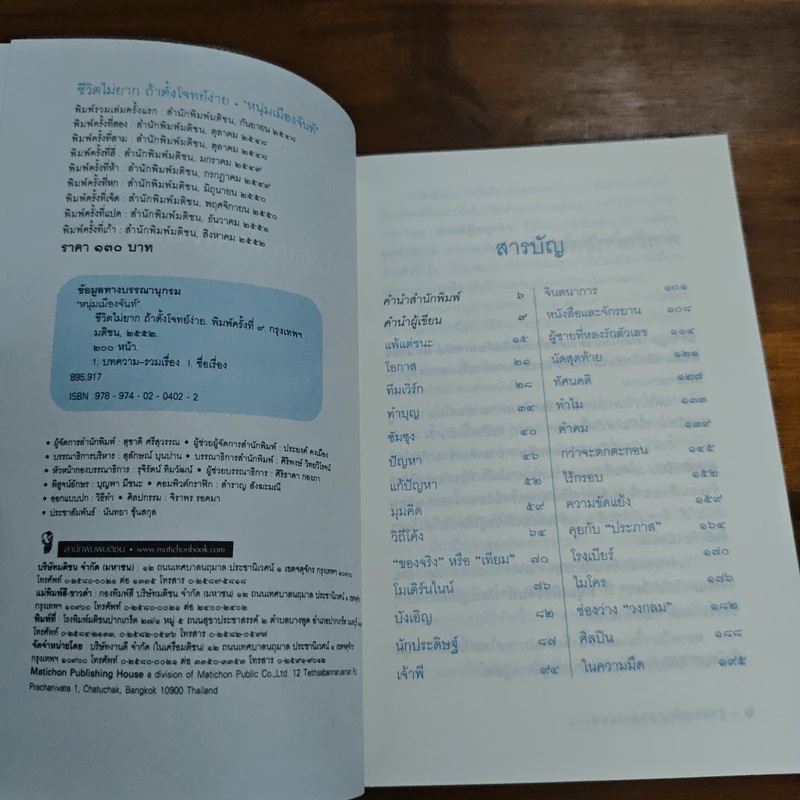 ชีวิตไม่ยาก ถ้าตั้งโจทย์ง่าย • "หนุ่มเมืองจันท์"
พิมพ์รวมเล่มครั้งแรก : สำนักพิมพ์มติชน, กันยายน ๒๕๔๘
พิมพ์ครั้งที่สอง : สำนักพิมพ์มติชน, ตุลาคม ๒๕๔๘
พิมพ์ครั้งที่สาม : สำนักพิมพ์มติชน, ตุลาคม ๒๕๔๘
พิมพ์ครั้งที่สี่ : สำนักพิมพ์มติชน, มกราคม ๒๕๔๙
พิมพ์ครั้งที่ห้า : สำนักพิมพ์มติชน, กรกฎาคม ๒๕๔๙
พิมพ์ครั้งที่หก : สำนักพิมพ์มติชน, มิถุนายน ๒๕๕๐
พิมพ์ครั้งที่เจ็ด : สำนักพิมพ์มติชน, พฤศจิกายน ๒๕๕๐
พิมพ์ครั้งที่แปด : สำนักพิมพ์มติชน, ธันวาคม ๒๕๕๑
พิมพ์ครั้งที่เก้า : สำนักพิมพ์มติชน, สิงหาคม ๒๕๕๒
ราคา ๑๓๐ บาท
ข้อมูลทางบรรณานุกรม
"หนุ่มเมืองจันท์".
ชีวิตไม่ยาก ถ้าตั้งโจทย์ง่าย. พิมพ์ครั้งที่ ๙. กรุงเทพฯ :
มติชน, ๒๕๕๒.
๒๐๐ หน้า.
1. บทความ-รวมเรื่อง I. ชื่อเรื่อง
895.917
ISBN : 978 - 974 - 02 - 0402 - 2
• ผู้จัดการสำนักพิมพ์ : สุชาติ ศรีสุวรรณ • ผู้ช่วยผู้จัดการสำนักพิมพ์ : ประยงค์ คงเมือง
• บรรณาธิการบริหาร : สุลักษณ์ บุนปาน • บรรณาธิการสำนักพิมพ์ : ศิริพงษ์ วิทยวิโรจน์
• หัวหน้ากองบรรณาธิการ : รุจิรัตน์ ทิมวัฒน์ • ผู้ช่วยบรรณาธิการ : ศิริธาดา กองภา
• พิสูจน์อักษร : บุญพา มีชนะ • คอมพิวเตอร์กราฟิก : สำราญ สังฆะมณี
• ออกแบบปก : วิธีทำ • ศิลปกรรม : จิราพร รอดมา
• ประชาสัมพันธ์ : นันทยา ชุ้นสกุล
สำนักพิมพ์มติชน • www.matichonbook.com
บริษัทมติชน จำกัด (มหาชน) : ๑๒ ถนนเทศบาลนฤมาล ประชานิเวศน์ ๑ เขตจตุจักร กรุงเทพฯ ๑๐๙๐๐
โทรศัพท์ ๐-๒๕๘๐-๐๐๒๑ ต่อ ๑๒๓๕ โทรสาร ๐-๒๕๘๙-๕๘๑๘
แม่พิมพ์สี-ขาวดำ : กองพิมพ์สี บริษัทมติชน จำกัด (มหาชน) ๑๒ ถนนเทศบาลนฤมาล ประชานิเวศน์ ๑ เขตจตุจักร
กรุงเทพฯ ๑๐๙๐๐ โทรศัพท์ ๐-๒๕๘๐-๐๐๒๑ ต่อ ๒๔๐๐-๒๔๐๒
พิมพ์ที่ : โรงพิมพ์มติชนปากเกร็ด ๒๗/๑ หมู่ ๕ ถนนสุขาประชาสรรค์ ๒ ตำบลบางพูด อำเภอปากเกร็ด
โทรศัพท์ ๐-๒๕๘๔-๒๑๓๓, ๐-๒๕๘๒-๐๕๙๖ โทรสาร ๐-๒๕๘๒-๐๕๙๗
จัดจำหน่ายโดย : บริษัทงานดี จำกัด (ในเครือมติชน) ๑๒ ถนนเทศบาลนฤมาล ประชานิเวศน์ ๑ เขตจตุจักร
กรุงเทพฯ ๑๐๙๐๐ โทรศัพท์ ๐-๒๕๘๐-๐๐๒๑ ต่อ ๓๓๕๐-๓๓๕๓ โทรสาร ๐-๒๕๙๑-๙๐๑๒
Matichon Publishing House a division of Matichon Public Co.,Ltd. 12 Tethsabannarueman Rd,
Prachanivate 1, Chatuchak, Bangkok 10900 Thailand
สารบัญ
คำนำสำนักพิมพ์ ๖
คำนำผู้เขียน ๙
แพ้แต่ชนะ ๑๕
โอกาส ๒๑
ทีมเวิร์ก ๒๘
ทำบุญ ๓๔
ซัมซุง ๔๐
ปัญหา ๔๖
แก้ปัญหา ๕๒
มุมคิด ๕๙
วิถีโค้ง ๖๔
"ของจริง" หรือ "เทียม" ๗๐
โมเดิร์นไนน์ ๗๖
บังเอิญ ๘๒
นักประดิษฐ์ ๘๗
เจ้าพี่ ๙๔
จินตนาการ ๑๐๑
หนังสือและจักรยาน ๑๐๘
ผู้ชายที่หลงรักตัวเลข ๑๑๔
นัดสุดท้าย ๑๒๑
ทัศนคติ ๑๒๗
ทำไม ๑๓๓
คำคม ๑๓๙
กว่าจะตกตะกอน ๑๔๕
ไร้กรอบ ๑๕๒
ความขัดแย้ง ๑๕๙
คุยกับ "ประภาส" ๑๖๔
โรงเบียร์ ๑๗๐
ไมโคร ๑๗๖
ช่องว่าง "วงกลม" ๑๘๒
ศิลปิน ๑๘๘
ในความมืด ๑๙๕